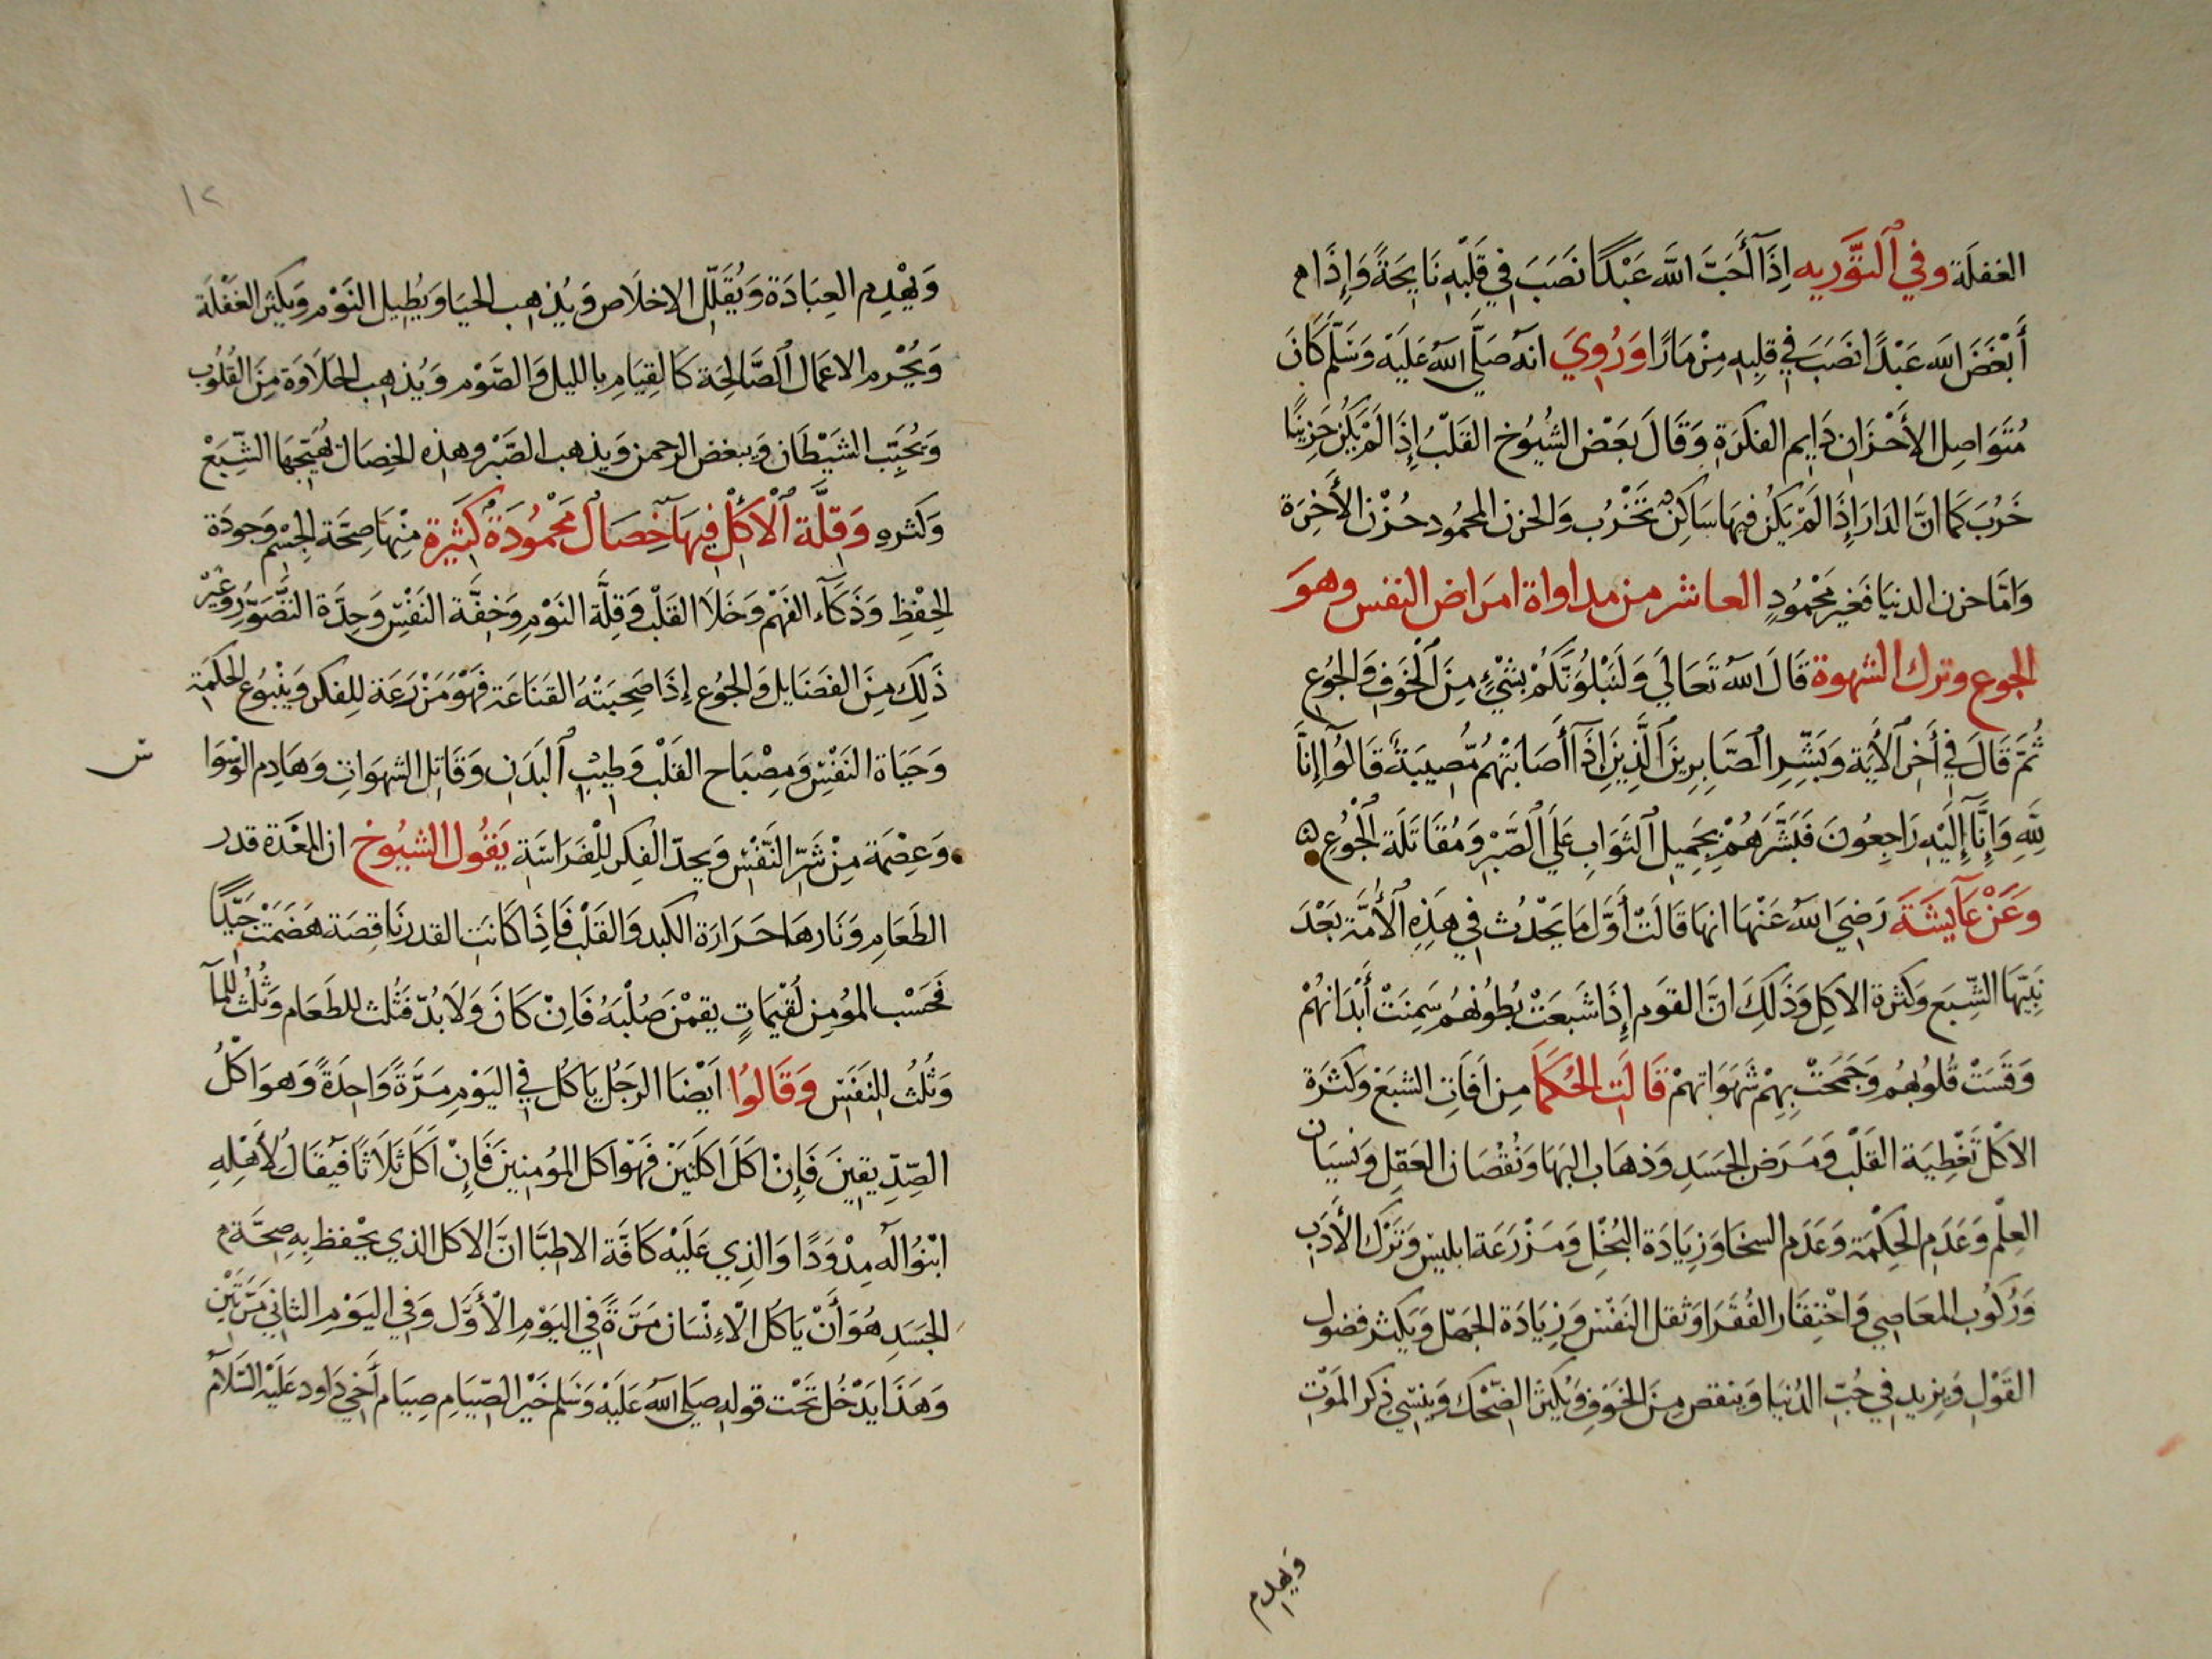 الغفلَة وفي ٱلتَّوَريه اِذَآ أَحَبَّ اللَّه عَبْدًا نَصَبَ فِي قَلْبِهِ نَايِحَةً وَإِذَا م
أَبْغَضَ اللَه عَبْدًا نصَبَ في قلبِهِ مِزْمَارًا وَرُوِيَ انه صَلَّي اللَّه عَلَيْه وَسَلَّم كَانَ
مُتَوَاصِل الأَحْزَانِ دَايِم الفكرَةِ وَقَالَ بَعْض الشُيُوخ القَلْبُ إِذَا لَمْ يَكُن حَزِينًا
خَرُبَ كَمَا انَّ الدَارَ إِذَا لَمْ يَكُن فِيهَا سَاكِنٌ تَخْرُب وَالحزن المحمُود حُزْن الأَخِرَة
وَامَّا حزن الدنيَا فَغير مَحْمُودٍ العاشر من مداواة امرَاض النفس وهوَ
الجوع وترك الشهوة قَالَ اللَّه تَعَالَي وَلَنَبْلُوَنَّكُمْ بِشَيْءٍ مِنَ ٱلْخَوْفِ وَالْجُوعِ
ثُمَّ قَالَ فِي أَخِرِ ٱلأَيَة وَبَشِّرِ ٱلصَّابِرِينَ ٱلَّذِينَ إِذَآ أَصَابَتْهُمْ مُّصِيبَةٌ قَالُوٓا إِنَّا
لِلَّهِ وَإِنَّآ إِلَيْهِ رَاجِعُونَ فَبَشَّرَهُمْ بِجَمِيل ٱلثَوَابِ عَلَي ٱلصَّبْرِ وَمُقَاتَلَة ٱلْجُوع
وَعَنْ عَآيشَةَ رَضِيَ اللَّه عَنْهَا انهَا قَالَتْ أَوَّل مَا يَحْدُث فِي هَذِهِ ٱلأُمَّة بَعْدَ
نَبِيّهَا الشِّبَع وَكَثرة الاكلِ وَذَلِكَ انَّ القَوم إِذَا شَبعَتْ بُطُونهُم سَمِنَتْ أَبْدَانهُمْ
وَقَسَتْ قُلُوبهُم وَجَمَحَتْ بِهِمْ شَهَوَاتهمْ قَالَتِ الحُكَمَآ مِن اَفَاتِ الشبَعْ وَكَثرَة
الاَكْل تَغْطِيَة القَلْب وَمَرَض الجَسَدِ وَذهَاب البهَا وَنُقْصَان العَقلِ وَنسيَان
العِلْم وَعَدَم الحِكْمَة وَعَدَم السخَا وَزِيَادَة البُخْل وَمَزْرَعَة ابليس وَتَرْك الأَدَبِ
وَرُكُوب المعَاصِي وَاحْتِقَار الفُقَرَا وَثقل النَفْس وَزِيَادَة الجَهل وَيكثر فضول
القَوْل وَيزيد فِي حُبّ الدُنيَا وَينقص مِنَ الخَوفِ وَيُكْثِر الضّحْك وَينسِي ذِكر المَوْتِ
وَيهدم
١٢
وَيهْدِم العِبَادَة وَيُقَلِّل الاخلَاص وَيُذهِب الحيَا وَيُطِيل النَوْم وَيكثر الغَفْلَة
وَيُحْرم الاعمَال ٱلصَّالِحَة كَالقِيَامِ بِالليل وَالصَّوْم وَيُذهِب الحَلَاوَة مِنَ القُلُوبِ
وَيُحَبِّب الشَيْطَان وَيبغض الرحمن وَيذهب الصَّبْر وهذه الخِصَال يُهَيِّجهَا الشِّبَعْ
وَكثره وَقِلَّة ٱلْأَكْل فِيهَا خِصَال مَحْمُودَة كَثِيرة مِنْهَا صِحَّة الجِسْم وَجودَة
الحِفْظِ وَذَكَآء الفَهْم وَخَلَا القَلْب وَقِلَّة النَوْم وَخفَّة النَفْس وَحِدَّة التَّصَوّر وغَيْر
ذَلِكَ مِنَ الفضَايل وَالجُوع إِذَا صَحِبَتْهُ القَنَاعَة فَهْوَ مَزْرَعَة لِلفكر وَينْبُوع الحكمَة
وَحَيَاة النَفْس وَمِصْبَاح القَلْب وَطِيب ٱلبَدَنِ وَقَاتِل الشهَوَاتِ وَهَادِم الوَسْوَا
س
وَعِصْمَة مِنْ شَرّ النَّفْس وَيحدّ الفِكر لِلْفرَاسَة يَقُول الشيُوخ ان المعْدَة قدر
الطَعَامِ وَنَارهَا حَرَارَة الكبد وَالقَلْب فَإِذَا كَانَتِ القدر نَاقِصَة هَضَمَتْ جَيِّدًا
فَحَسْب المؤمِن لُقَيْمَاتٍ يقمْنَ صَلْبَهُ فَاِنْ كَانَ وَلَا بُدّ فَثُلث للطَعَام وَثُلُث لِلمَآ
وَثُلُث لِلنَفَسِ وَقَالوُا اَيْضَا الرَجُل يَاكُل فِي اليَوْمِ مَرَّةً وَاحِدَةً وَهوَ اَكْلُ
الصِّدِّيقِينَ فَإِنْ اَكَلَ اكلَتَيْنِ فَهْوَ اكل المؤمِنينَ فَإِنْ اَكَلَ ثَلَاثًا فَيُقَال لِأَهْلِهِ
ابْنُوا لَه مِدْوَدًا وَالذِي عَلَيْه كَافَّة الاطبَّا انَّ الاكَل الذي يحْفظ بِهِ صِحَّة م
الجَسَدِ هُوَ أَنْ يَاكُل الْاِنْسَان مَرَّةً فِي اليَوْمِ الْأَوَّل وَفِي اليَوْمِ الثانِي مَرَّتَيْنِ
وَهَذَا يَدْخُل تَحْت قوله صَلَي اللَّه عَلَيْه وَسَلم خَيْر الصّيَام صِيَام أَخي دَاود عَلَيْه السَلَام